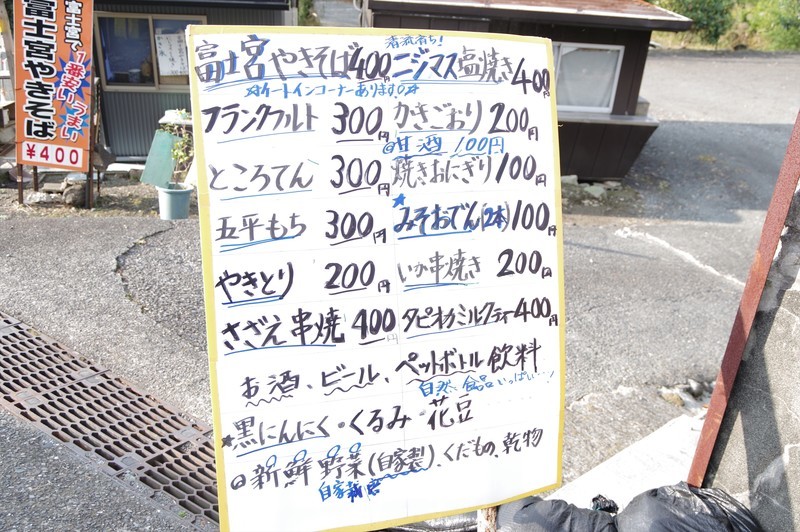 富士宮で1番安い、うまい
富士宮やきそば
¥400
清流育ち!
富士宮やきそば 400円 ニジマス塩焼き 400円
☆イートインコーナーあります☆
フランクフルト 300円 かきごおり 200円
◎甘酒 100円
ところてん 300円 焼きおにぎり 100円
五平もち 300円 ★みそおでん(2本) 100円
やきとり 200円 いか串焼き 200円
さざえ串焼 400円 タピオカミルクティ 400円
お酒、ビール、ペットボトル飲料
自然食品いっぱい…!
★黒にんにく・くるみ・花豆
◎新鮮野菜(自家製)、くだもの、乾物
自家栽培